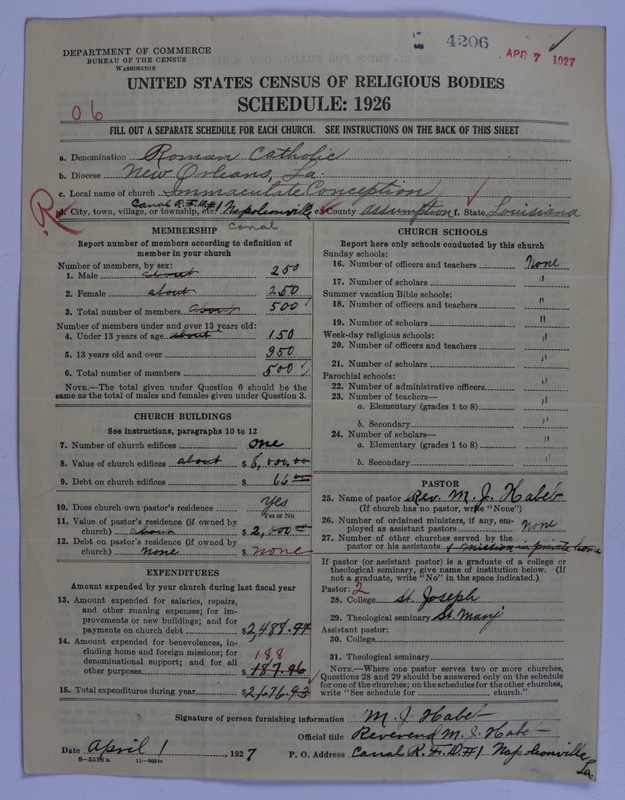 4206
APR 7 1927
DEPARTMENT OF COMMERCE
BUREAU OF THE CENSUS
WASHINGTON
UNITED STATES CENSUS OF RELIGIOUS BODIES
SCHEDULE: 1926
06
FILL OUT A SEPARATE SCHEDULE FOR EACH CHURCH. SEE INSTRUCTIONS ON THE BACK OF THIS SHEET
a. Denomination Roman Catholic
b. Diocese New Orleans, La.
c. Local name of church Immaculate Conception
R
d. City, town, village, or township, etc. Canal R.F.D.#1 Napoleonville e. County assumption f. State Louisiana
Canal
MEMBERSHIP
Report number of members according to definition of member in your church
Number of members, by sex:
1. Male about 250
2. Female about 250
3. Total number of members about 500
Number of members under and over 13 years old:
4. Under 13 years of age about 150
5. 13 years old and over 350
6. Total number of members 500
NOTE.—The total given under Question 6 should be the same as the total of males and females given under Question 3.
CHURCH BUILDINGS
See instructions, paragraphs 10 to 12
7. Number of church edifices one
8. Value of church edifices about $ 8,000.00
9. Debt on church edifices $
10. Does church own pastor's residence Yes
Yes or No
11. Value of pastor's residence (if owned by church) about $ 2,000
12. Debt on pastor's residence (if owned by church) none $ none
EXPENDITURES
Amount expended by your church during last fiscal year
13. Amount expended for salaries, repairs, and other running expenses; for improvements or new buildings; and for payments on church debt $2,488.97
14. Amount expended for benevolences, including home and foreign missions; for denominational support; and for all other purposes 188 $ 187.96
15. Total expenditures during year $2,676.93
CHURCH SCHOOLS
Report here only schools conducted by this church
Sunday schools:
16. Number of officers and teachers None
17. Number of scholars "
Summer vacation Bible schools:
18. Number of officers and teachers "
19. Number of scholars "
Week-day religious schools:
20. Number of officers and teachers "
21. Number of scholars "
Parochial schools:
22. Number of administrative officers "
23. Number of teachers—
a. Elementary (grades 1 to 8) "
b. Secondary "
24. Number of scholars—
a. Elementary (grades 1 to 8) "
b. Secondary "
PASTOR
25. Name of pastor Rev. M. J. Habet
(If church has no pastor, write "None")
26. Number of ordained ministers, if any, employed as assistant pastors None
27. Number of other churches served by the pastor or his assistants 1 mission in private home
If pastor (or assistant pastor) is a graduate of a college or theological seminary, give name of institution below. (If not a graduate, write "No" in the space indicated.)
Pastor: 2
28. College St. Joseph
29. Theological seminary St. Mary
Assistant pastor:
30. College
31. Theological seminary
NOTE.—Where one pastor serves two or more churches, Questions 28 and 29 should be answered only on the schedule for one of the churches; on the schedules for the other churches, write "See schedule for church."
Signature of person furnishing information M. J. Habet
Official title Reverend M. J. Habet
Date April 1, 1927 P. O. Address Canal R.F.D.#1 Napoleonville La.